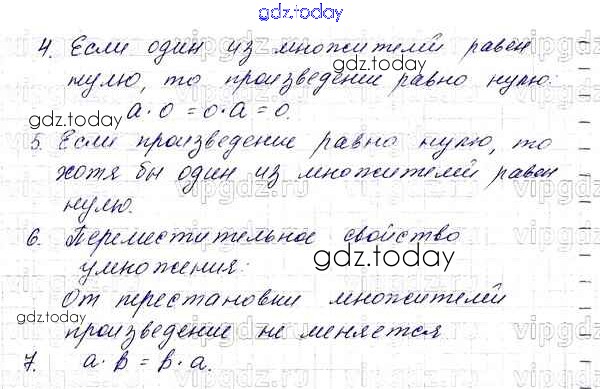 gdz.today
4. Если один из множителей равен
нулю, то произведение равно нулю:
gdz.today
а · 0 = 0 · а = 0.
gdz.today
5. Если произведение равно нулю, то
хотя бы один из множителей равен
vipgdz.ru
нулю.
6. Переместительное свойство
умножения:
gdz.today
От перестановки множителей
gdz.today
произведение не меняется
7. а · в = в · а.